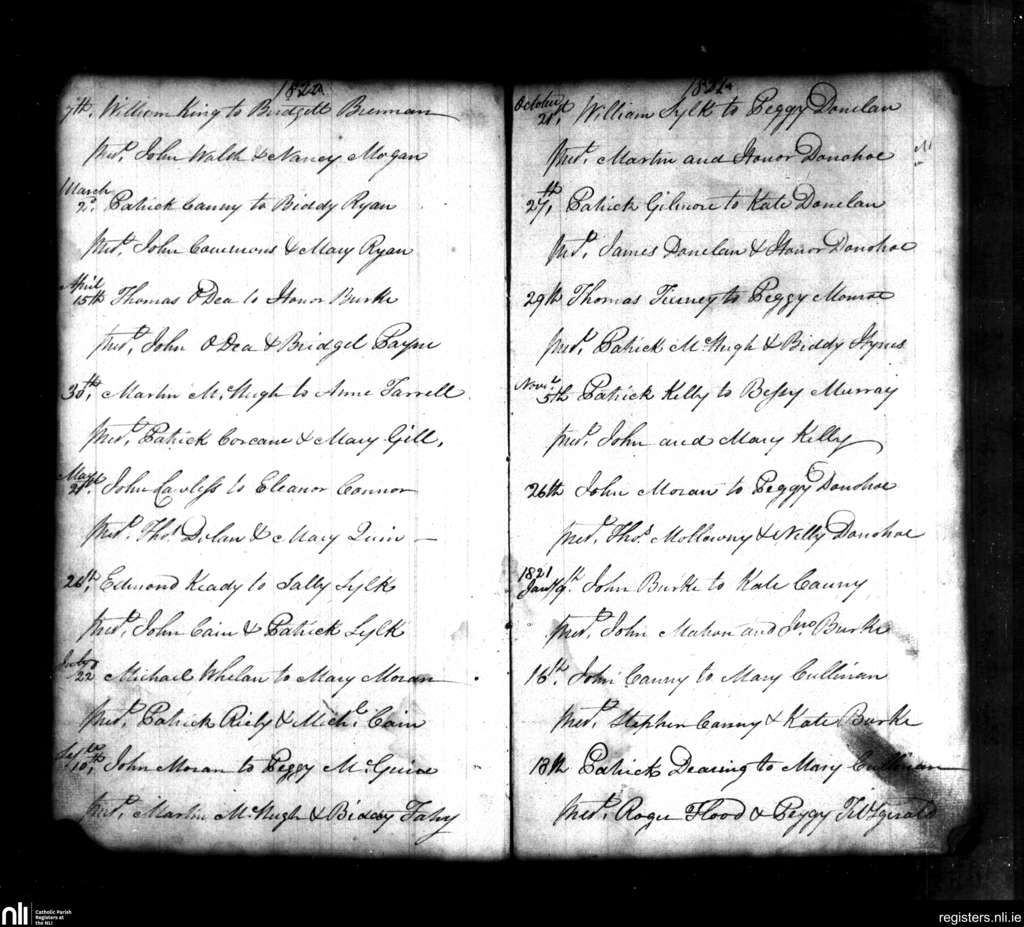 1820
7th. William King to Bridgett Brennan
prest. John Walsh & Nancy Mogan
March
2d. Patrick Canny to Biddy Ryan
prest. John Commons & Mary Ryan
April
15th Thomas O Dea to Honor Burke
prest. John O Dea & Bridget Payne
30th. Martin McHugh to Anne Farrell
prest. Patrick Corcane & Mary Gill,
May
21st. John Lawless to Eleanor Connor
prest. Thos. Dolan & Mary Quin
26th, Edmond Keady to Sally Lylk
prest, John Cain & Patrick Lylk
July
22 Michael Whelan to Mary Moran
prest, Patrick Riely & Michl. Cain
10th, John Moran to Peggy McGuire
prest, Martin McHugh & Biddy Fahy
October
21st, William Lylk to Peggy Donelan
prest. Martin and Honor Donohoe
27th, Patrick Gilmore to Kate Donelan
prest. James Donelan & Honor Donohoe
29th Thomas Tierney to Peggy Monroe
prest. Patrick McHugh & Biddy Hynes
Novr.
5th Patrick Kelly to Bessy Murray
prest, John and Mary Kelly
26th John Moran to Peggy Donohoe
prest, Thos. Mollowny & Nelly Donohoe
1821
Jany 9th. John Burke to Kate Canny
prest, John Mahon and Jno. Burke
16th. John Canny to Mary Cullinan
prest. Stephen Canny & Kate Burke
18th Patrick Dearing to Mary Cullinan
prest, Roger Flood & Peggy Fitzgerald
nli
Catholic Parish
Registers at
the NLI
registers.nli.ie